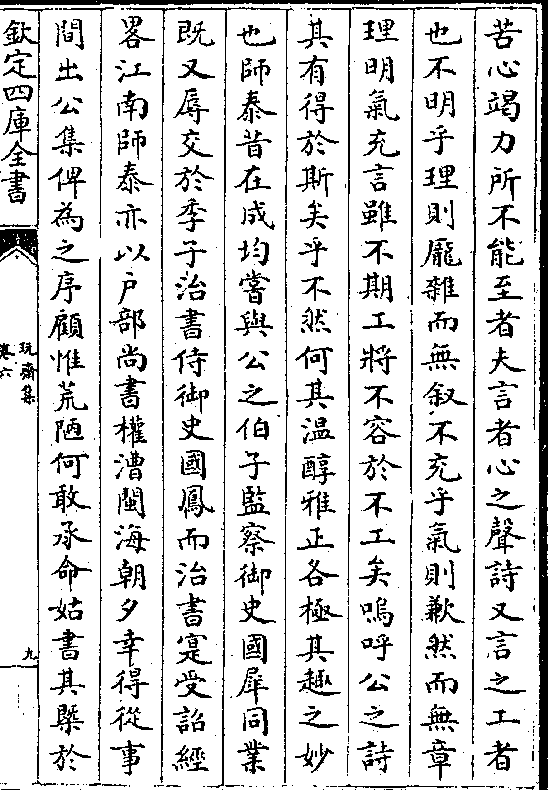 苦心竭力所不能至者夫言者心之聲詩又言之工者
也不明乎理則厖雜而無叙不充乎氣則歉然而無章
理明氣充言雖不期工將不容於不工矣嗚呼公之詩
其有得於斯矣乎不然何其温醇雅正各極其趣之妙
也師泰昔在成均嘗與公之伯子監察御史國犀同業
既又辱交於季子治書侍御史國鳳而治書寔受詔經
畧江南師泰亦以户部尚書權漕閩海朝夕幸得從事
間出公集俾為之序顧惟荒陋何敢承命姑書其槩於
欽定四庫全書
玩齋集
卷六
九